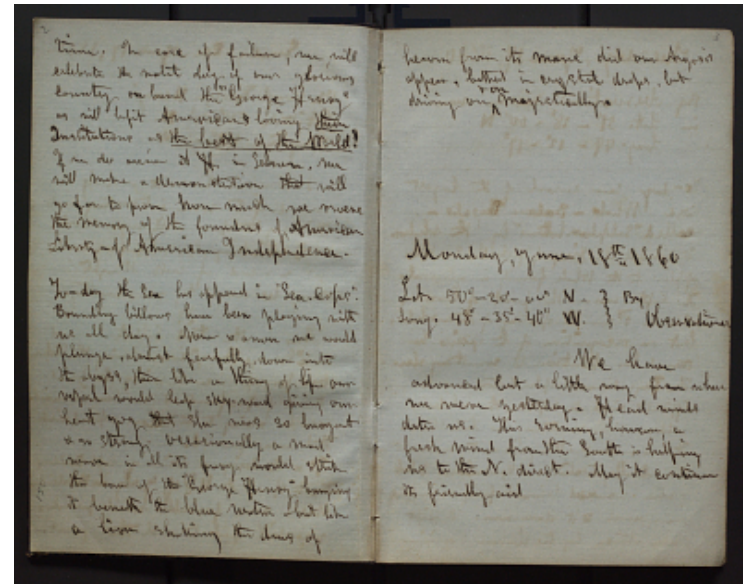 time. In case of failure, we will
celebrate the natal day of our glorious
country, on board the "George Henry"
as will befit Americans loving their
Institutions as the best of the World!
If we do arrive at H. in Season, we
will make a demonstration that will
go far to prove how much we revere
the memory of the founders of American
Liberty – of American Independence.
To-day the Sea has appeared in "Sea-Caps".
Bounding billows have been playing with
us all day. Now & anon we would
plunge, almost fearfully, down into
the abyss, then like a thing of life our
vessel would leap sky-ward giving our
heart that she was so buoyant
& so strong. Occasionally a mad
wave in all its fury would strike
the bow of the "George Henry" burying
it beneath the blue water – but like
a lion shaking the dews of
heaven from its mane did our
appear, bathed in crystal drops, but
driving on, & on majestically.
Monday, June, 18th 1860
Lat. 50°–20'–00" N. } By
Long. 48°–35'–40" W. } Observations
We have
advanced but a little way from where
we were yesterday. Head winds
detain us. This evening, however, a
fresh wind from the South is helping
us to the N. direct. May it continue
its friendly aid